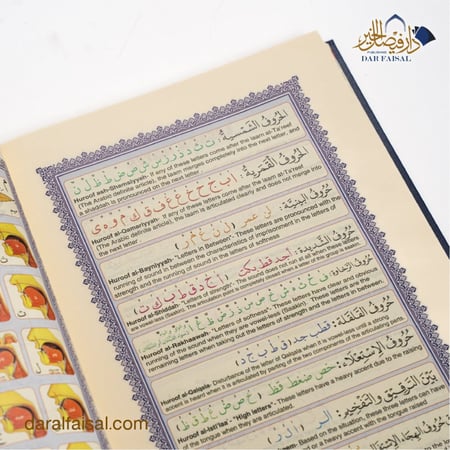 دار فيصل الخير
PUBLISHING
DAR FAISAL
الحُرُوفُ الشَّمْسِيَّةُ: ت ث د ذ ر ز س ش ص ض ط ظ ل ن
Huroof ash-Shamsiyyah- If any of these letters come after the laam al-Ta'reef
(The Arabic definite article), the laam merges completely into the next letter, and
a shaddah is pronounced on the next letter
الحُرُوفُ القَمَرِيَّةُ: ا ب ج ح خ ع غ ف ق ك م و ه ى
Huroof al-Qamariyyah- If any of these letters come after the laam al-Ta'reef
(The Arabic definite article), the laam is articulated clearly and does not merge into
the next letter
حُرُوفُ البَيْنِيَّةِ: لن عمر (ل ن ع م ر)
Huroof al-Bayniyyah- "Letters in between". These letters are pronounced with the
running of sound in between the characteristics of imprisonment in the letters of
strength and the running of sound in the letters of softness
حُرُوفُ الشَّدِيدَةِ: أجد قط بكت (أ ج د ق ط ب ك ت)
Huroof al-Shiddah- "Letters of strength". The sound does not run at all when these letters
حُرُوفُ الرَّخَاوَةِ:
Huroof al-Rakhaawah- "Letters of softness". These letters have clear and obvious
running of the sound when they are vowel-less (Saakin). These letters are the
remaining letters when taking out the letters of strength and the letters in between.
حُرُوفُ القَلْقَلَةِ: قطب جد (ق ط ب ج د)
Huroof al-Qalqala- Disturbance of the letter
accent is heard when it is articulated by parting of the two components of the articulating parts.
حُرُوفُ الاسْتِعْلَاءِ: خص ضغط قظ (خ ص ض غ ط ق ظ)
Huroof al-Isti'laa - "High letters"- These letters have a heavy accent due to the raising
of the tongue when they are articulated.
بَيْنَ التَّرْقِيقِ وَالتَّفْخِيمِ: الر (ا ل ر)
Based on the situation, these three letters can have
or a heavy accent with the tongue raised
daralfaisal.com